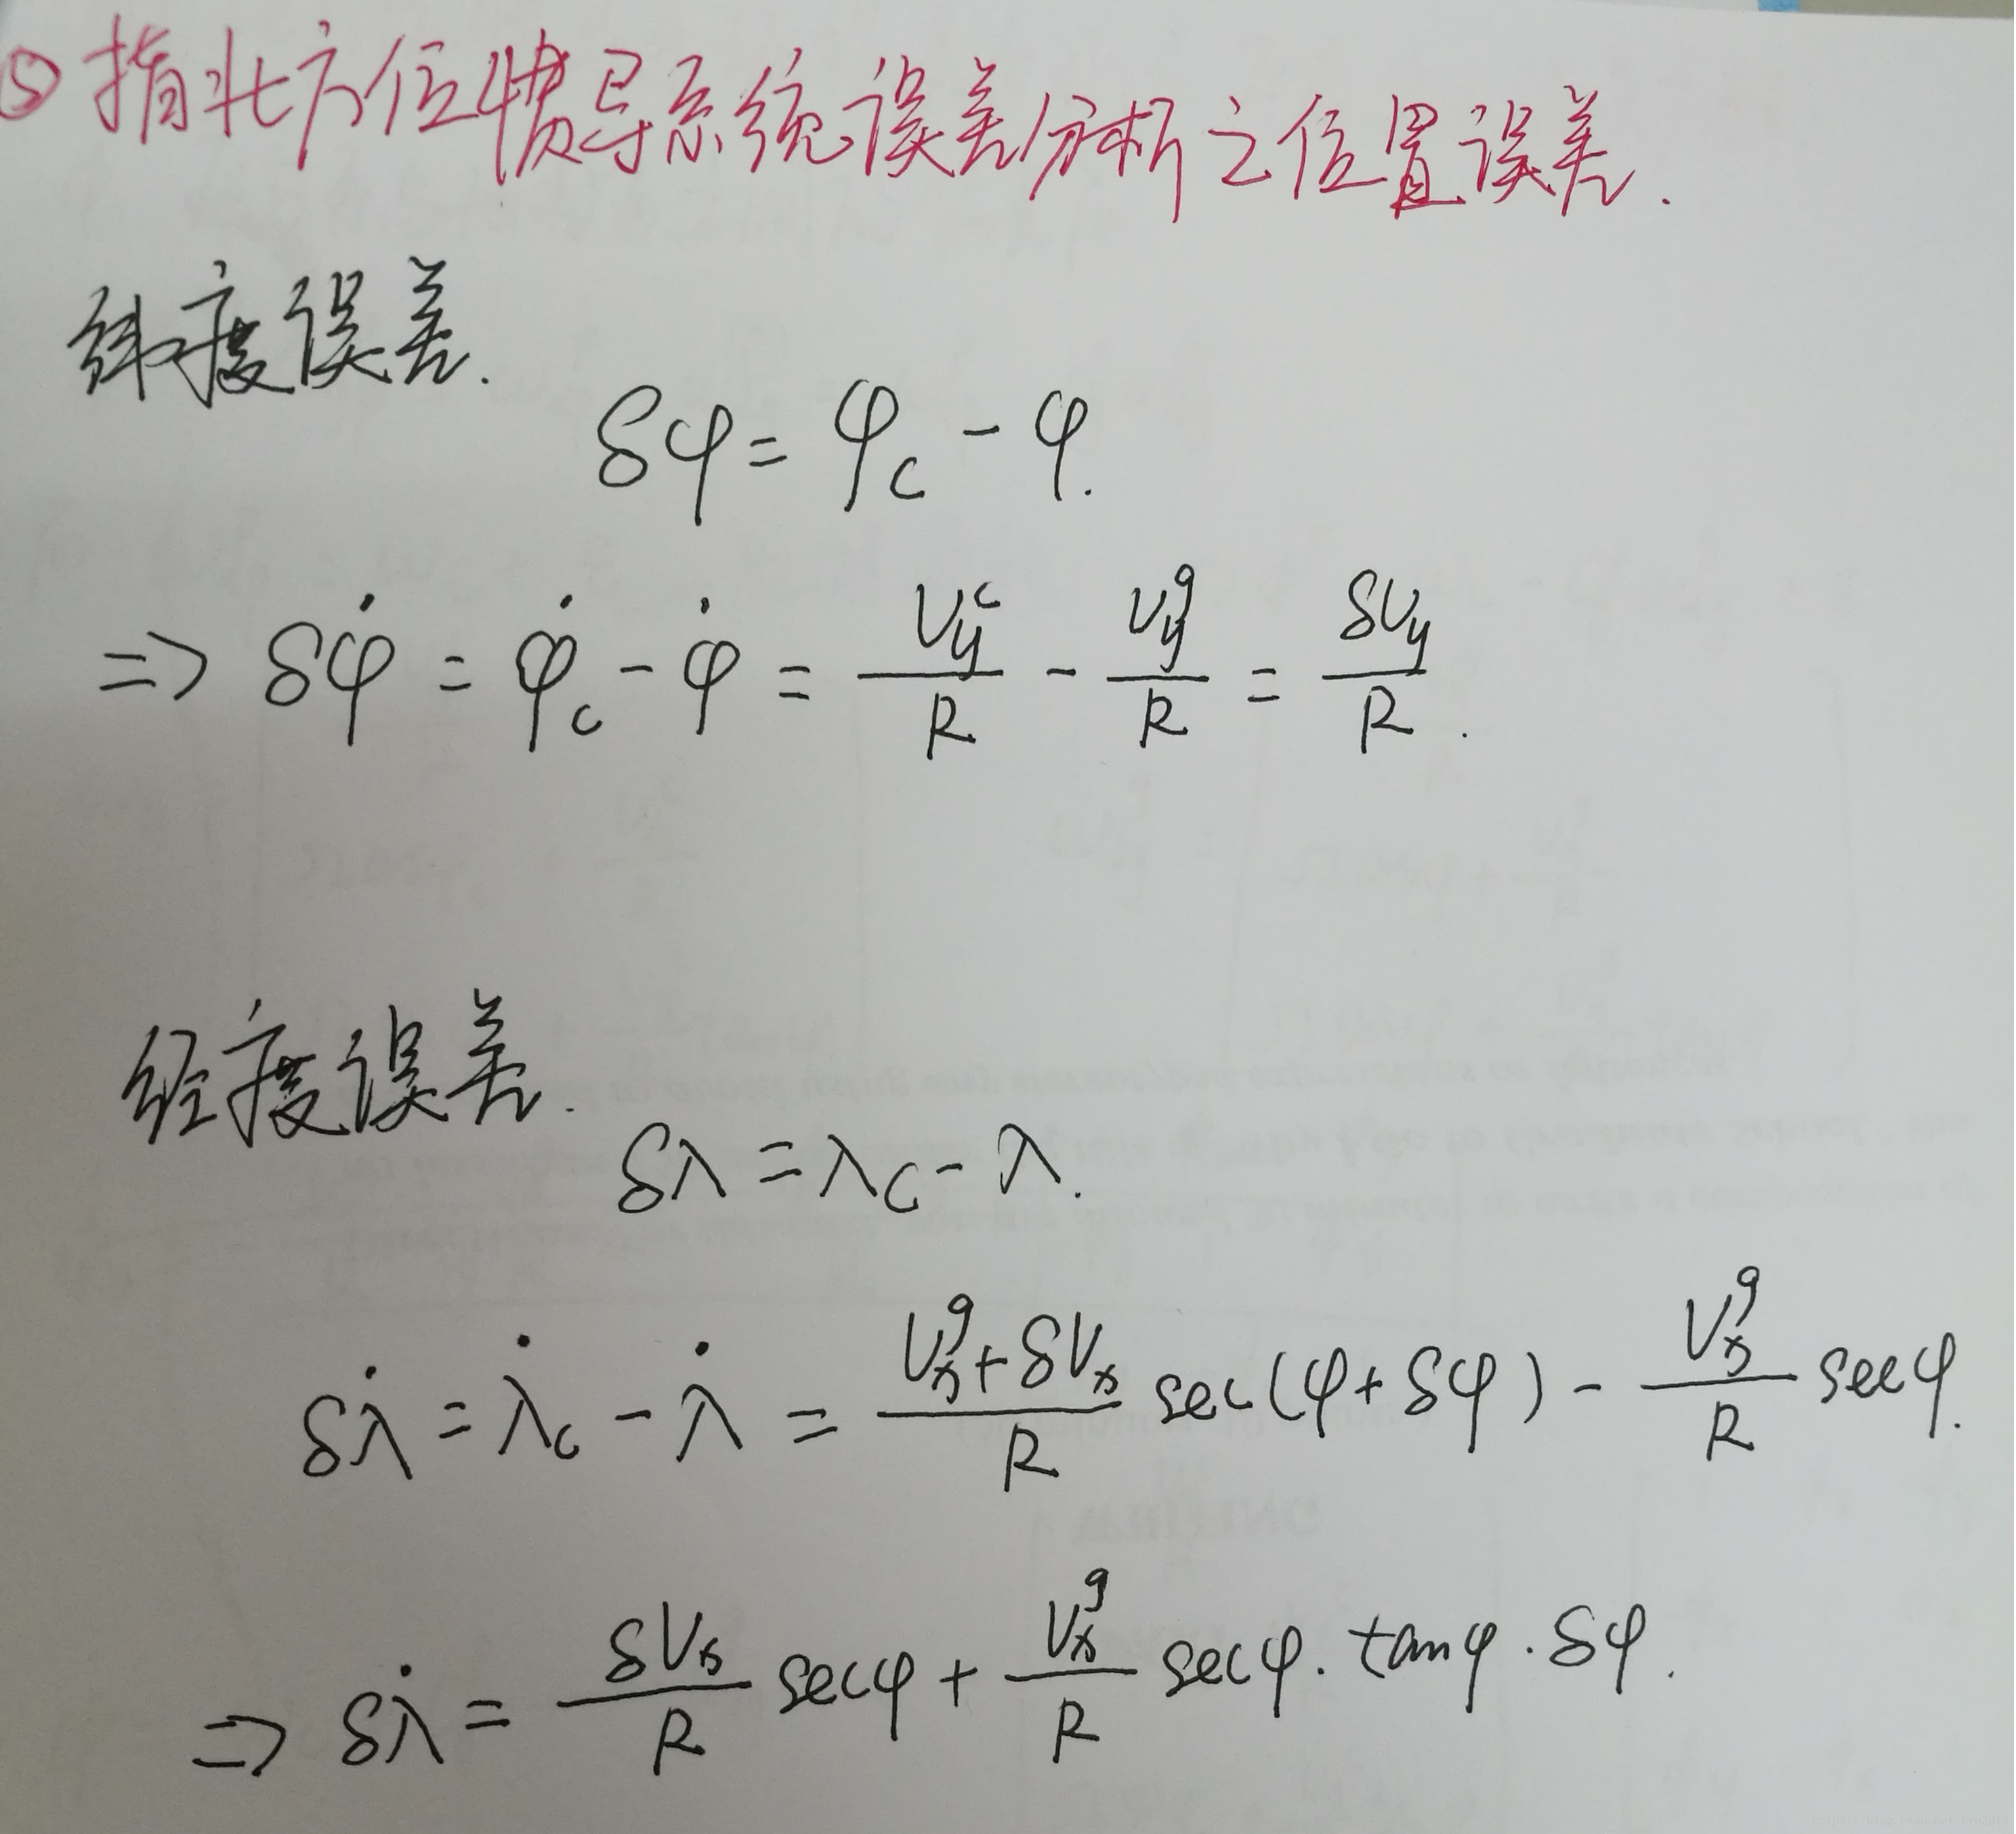 ⑤ 指北方位惯导系统误差分析之位置误差.
纬度误差.
δφ = φ_c - φ.
=> δφ̇ = φ̇_c - φ̇ = V_y^c / R - V_y^g / R = δV_y / R.
经度误差.
δλ = λ_c - λ.
δλ̇ = λ̇_c - λ̇ = (V_x^g + δV_x) / R sec(φ + δφ) - V_x^g / R secφ.
=> δλ̇ = δV_x / R secφ + V_x^g / R secφ · tanφ · δφ.